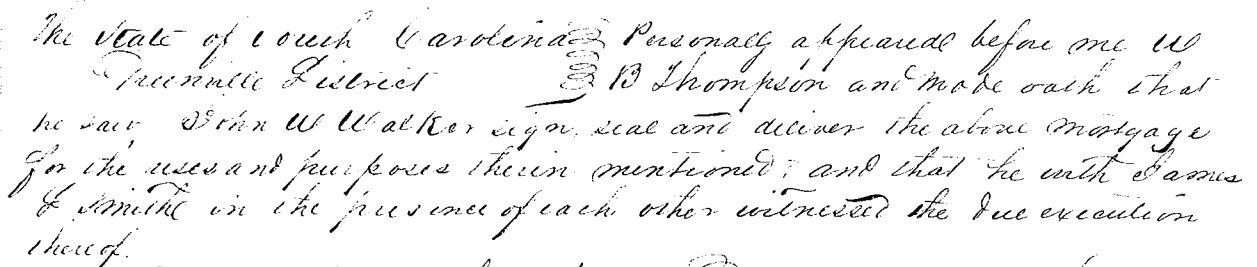 The State of South Carolina Personally appeared before me W
Greenville District B Thompson and made oath that
he saw John W Walker sign, seal and deliver the above mortgage
for the uses and purposes therein mentioned; and that he with James
L Smith in the presence of each other witnessed the due execution
thereof.